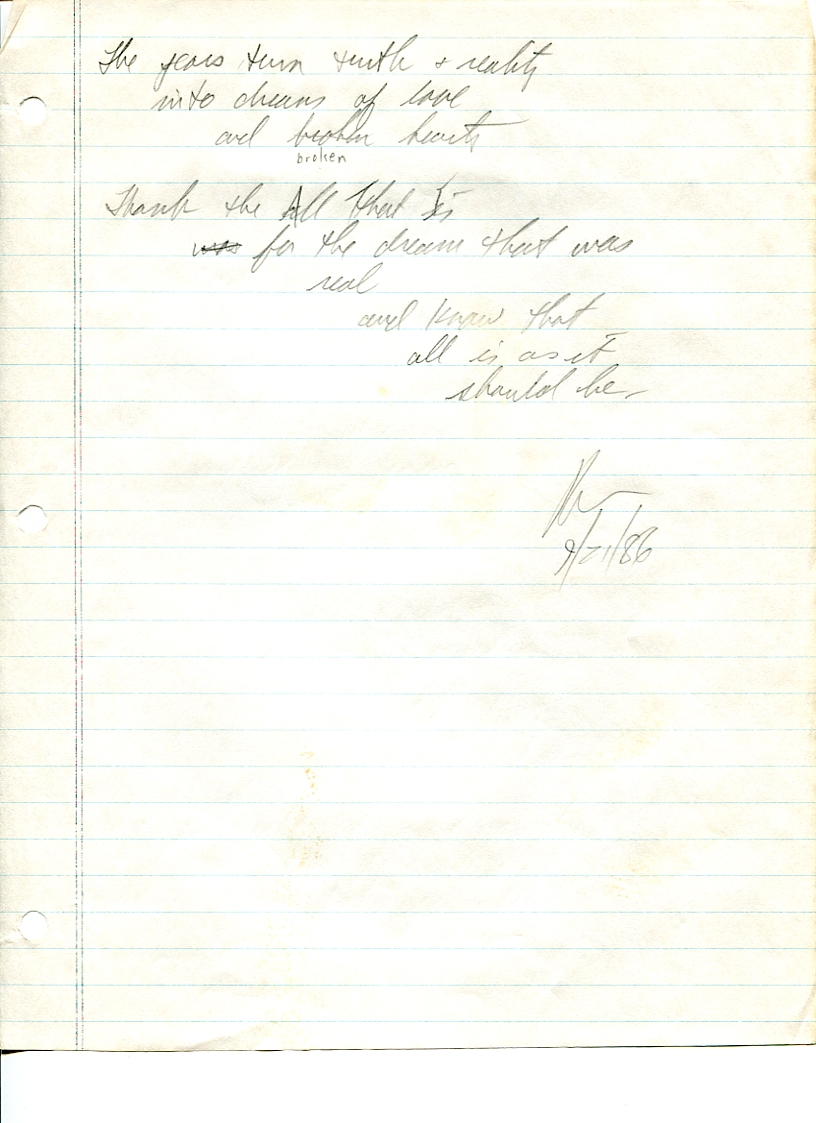 The years turn truth & reality
into dreams of love
and broken hearts
broken
Thank the All that Is
was for the dream that was
real
and know that
all is as it
should be
9/21/86